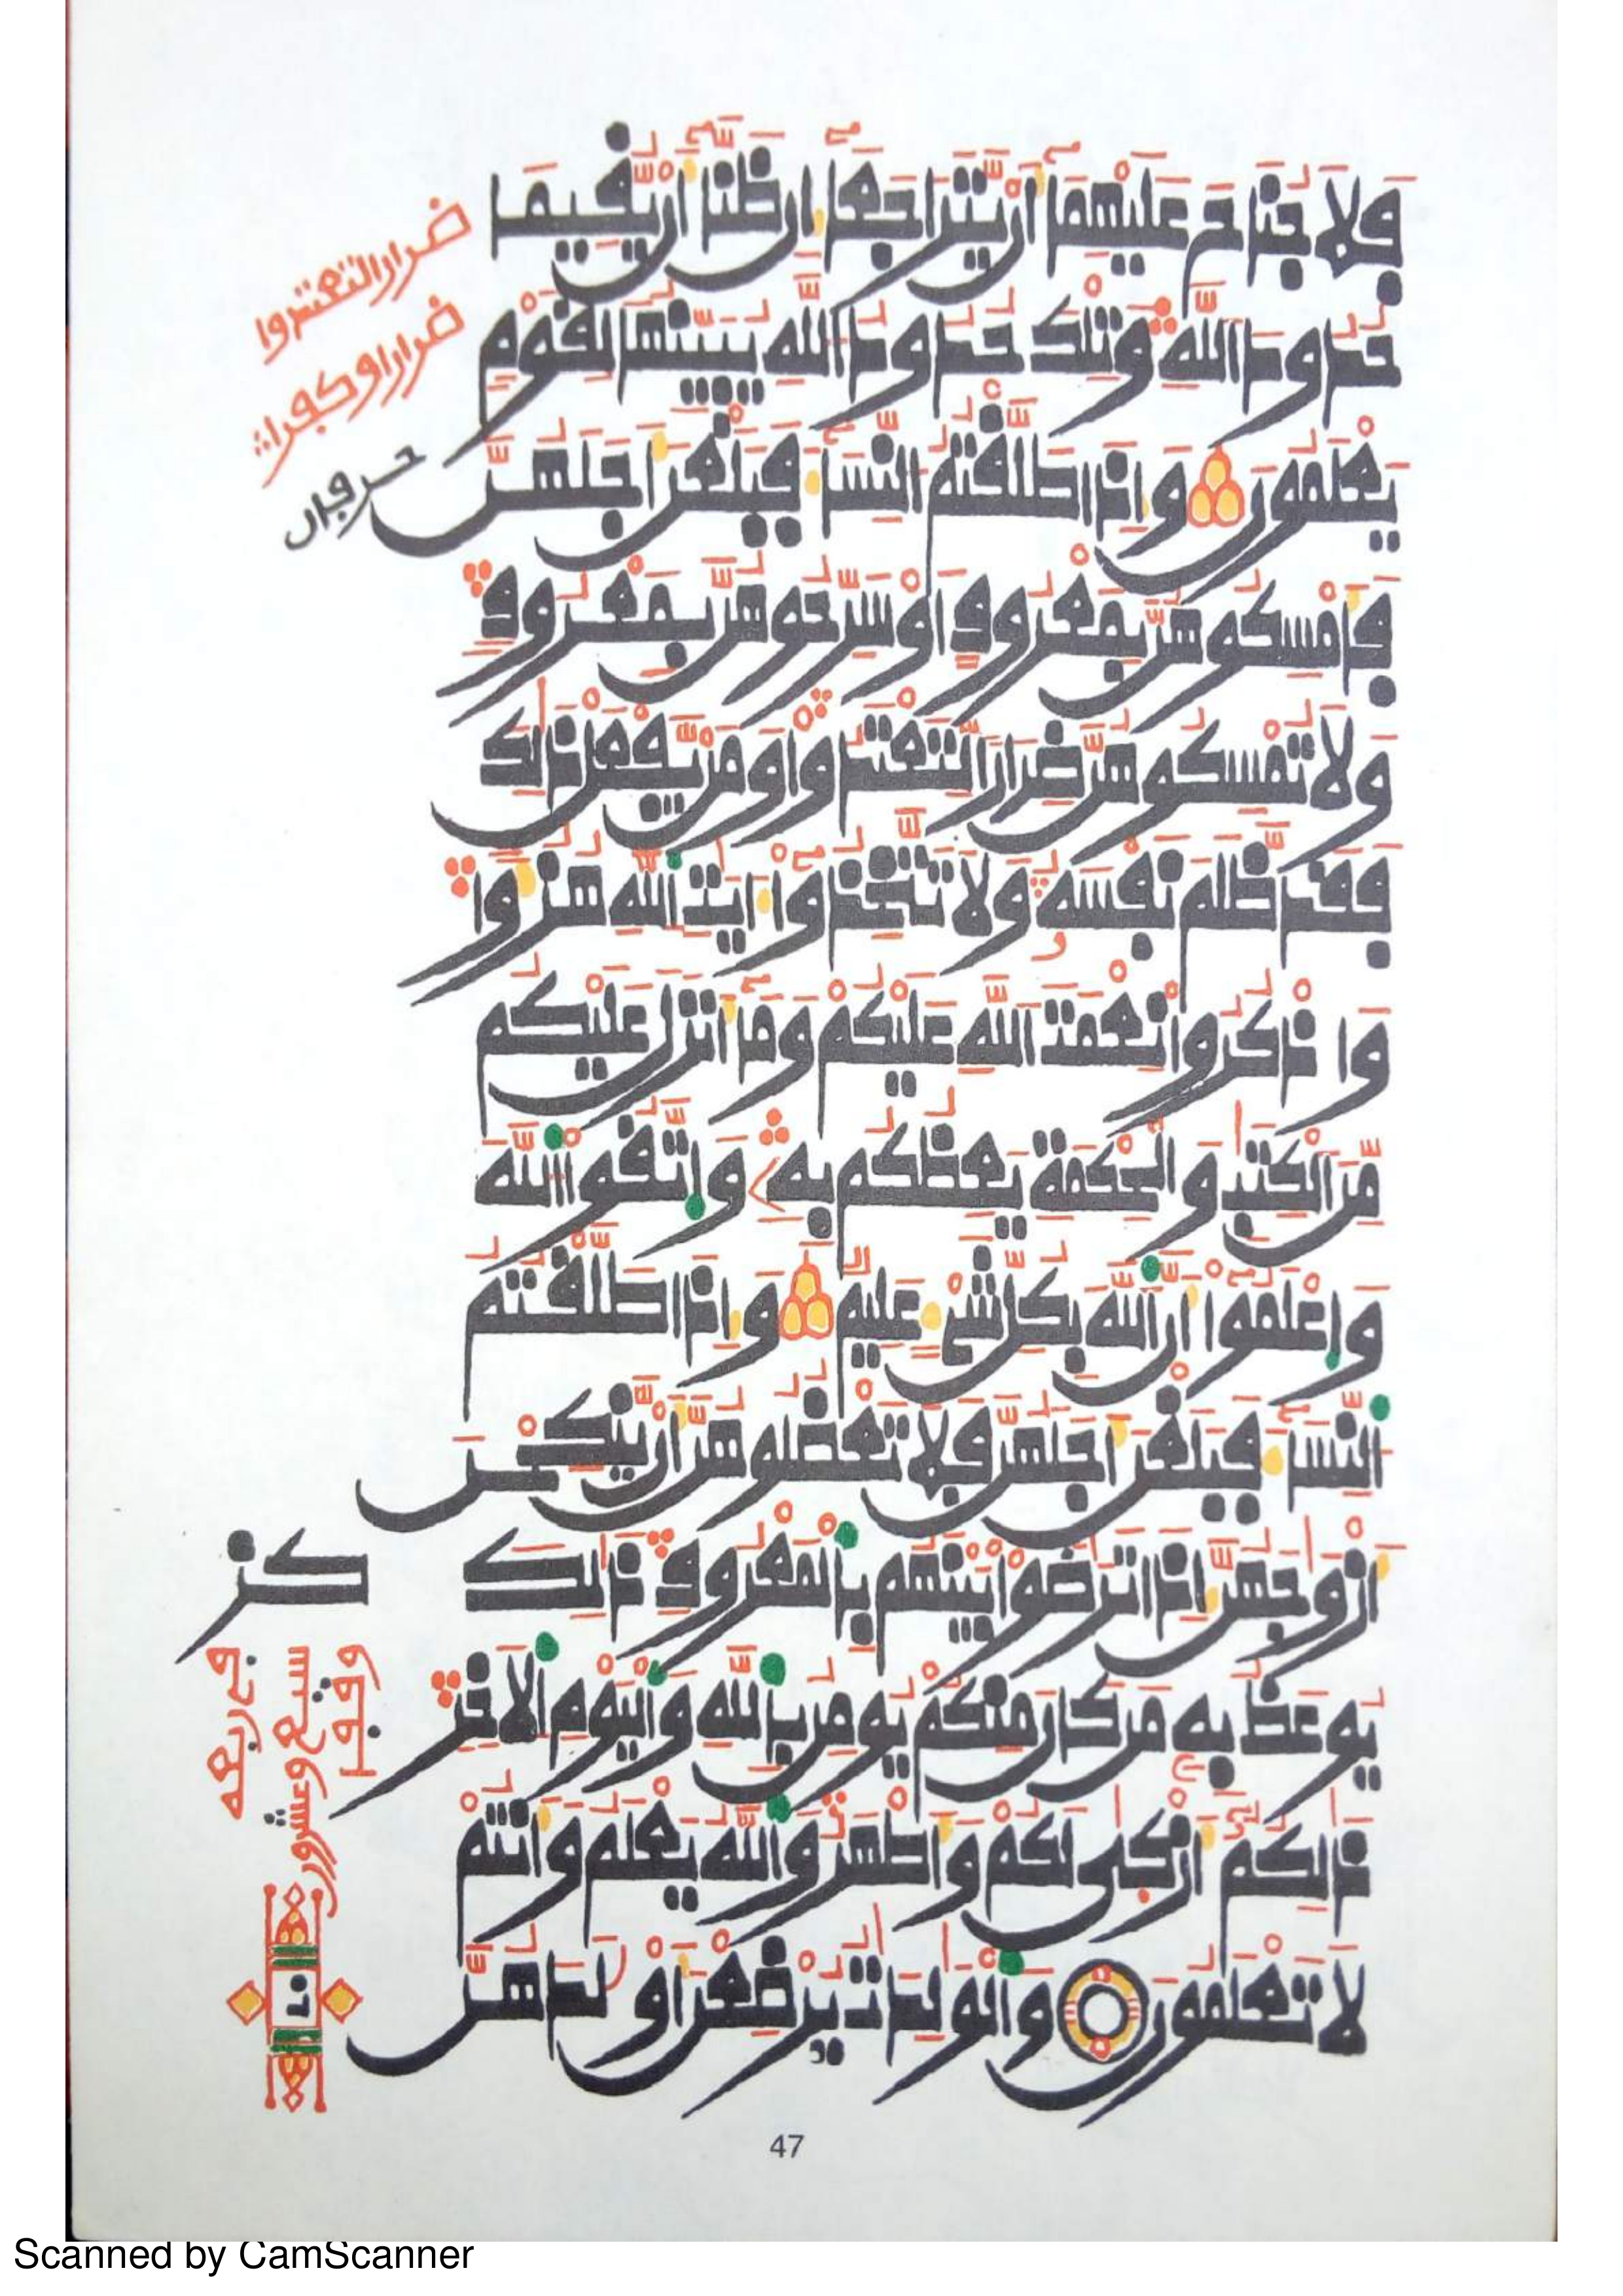 فَلَا جُنَاحَ عَلَيْهِمَآ أَنْ يَّتَرَاجَعَآ إِن ظَنَّآ أَنْ يُّقِيمَا
حُدُودَ اللَّهِ وَتِلْكَ حُدُودُ اللَّهِ يُبَيِّنُهَا لِقَوْمٍ
يَعْلَمُونَ وَإِذَا طَلَّقْتُمُ النِّسَآءَ فَبَلَغْنَ أَجَلَهُنَّ
فَأَمْسِكُوهُنَّ بِمَعْرُوفٍ أَوْ سَرِّحُوهُنَّ بِمَعْرُوفٍ
وَلَا تُمْسِكُوهُنَّ ضِرَارًا لِّتَعْتَدُواْ وَمَنْ يَّفْعَلْ ذَٰلِكَ
فَقَدْ ظَلَمَ نَفْسَهُ وَلَا تَتَّخِذُوٓاْ ءَايَٰتِ اللَّهِ هُزُؤًا
وَاذْكُرُواْ نِعْمَتَ اللَّهِ عَلَيْكُمْ وَمَآ أَنزَلَ عَلَيْكُم
مِّنَ الْكِتَٰبِ وَالْحِكْمَةِ يَعِظُكُم بِهِ وَاتَّقُواْ اللَّهَ
وَاعْلَمُوٓاْ أَنَّ اللَّهَ بِكُلِّ شَيْءٍ عَلِيمٌ وَإِذَا طَلَّقْتُمُ
النِّسَآءَ فَبَلَغْنَ أَجَلَهُنَّ فَلَا تَعْضُلُوهُنَّ أَنْ يَّنكِحْنَ
أَزْوَٰجَهُنَّ إِذَا تَرَٰضَوْاْ بَيْنَهُم بِالْمَعْرُوفِ ذَٰلِكَ
يُوعَظُ بِهِ مَن كَانَ مِنكُمْ يُومِنُ بِاللَّهِ وَالْيَوْمِ الْأَخِرِ
ذَٰلِكُمُۥٓ أَزْكَىٰ لَكُمْ وَأَطْهَرُ وَاللَّهُ يَعْلَمُ وَأَنتُمْ
لَا تَعْلَمُونَ وَالْوَٰلِدَٰتُ يُرْضِعْنَ أَوْلَٰدَهُنَّ
ضرارا لتعتدوا
ضرارا وكفرا
حرفان
كز
سبع وعشرون
47
Scanned by CamScanner